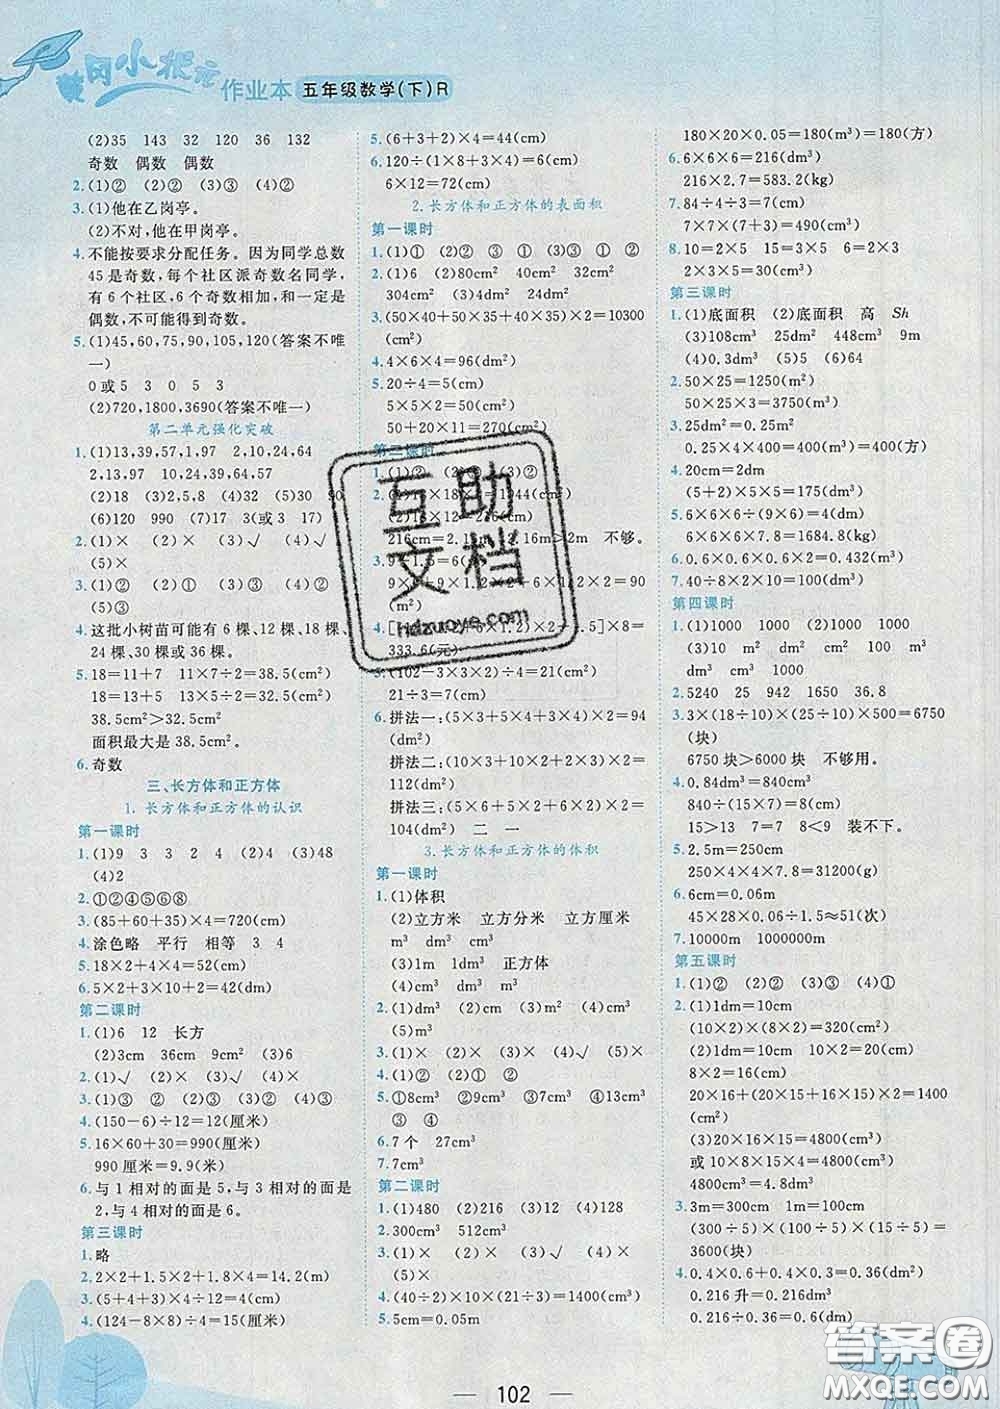 黄冈小状元
作业本 五年级数学(下)R
(2)35 143 32 120 36 132
奇数 偶数 偶数
2.(1)② (2)② (3)③ (4)②
3.(1)他在乙岗亭。
(2)不对,他在甲岗亭。
4.不能按要求分配任务。因为同学总数
45是奇数,每个社区派奇数名同学,
有6个社区,6个奇数相加,和一定是
偶数,不可能得到奇数。
5.(1)45,60,75,90,105,120(答案不唯
一)
0或5 3 0 5 3
(2)720,1800,3690(答案不唯一)
第二单元强化突破
1.(1)13,39,57,1,97 2,10,24,64
2,13,97 10,39,24,57,64
(2)18 (3)2 (4)0 (5)30
(6)120 990 (7)3(或3 17)
2.(1)× (2)× (3)√ (4)√
(5)×
3.(1)② (2)② (3)③ (4)①
(5)③
4.这批小树苗可能有6棵、12棵、18棵、
24棵、30棵或36棵。
5.18=11+7 11×7÷2=38.5(cm²)
18=13+5 13×5÷2=32.5(cm²)
38.5cm²>32.5cm²
面积最大是38.5cm²。
6.奇数
三、长方体和正方体
1.长方体和正方体的认识
第一课时
1.(1)9 3 3 2 4 (2)4 (3)48
(4)2
2.①②④⑤⑥⑧
3.(85+60+35)×4=720(cm)
4.涂色略 平行 相等 3 4
5.18×2+4×4=52(cm)
6.5×2+3×10+2=42(dm)
第二课时
1.(1)6 12 长方
(2)3cm 36cm 9cm² (3)6
2.(1)√ (2)× (3)√ (4)×
3.(1)③ (2)② (3)② (4)③
4.(150-6)÷12=12(厘米)
5.16×60+30=990(厘米)
990厘米=9.9(米)
6.与1相对的面是5,与3相对的面是
2,与4相对的面是6。
第三课时
1.略
2.2×2+1.5×2+1.8×4=14.2(m)
3.(5+4+3)×4÷12=4(cm)
4.(124-8×8)÷4=15(厘米)
5.(6+3+2)×4=44(cm)
6.120÷(1×8+3×4)=6(cm)
6×12=72(cm)
2.长方体和正方体的表面积
第一课时
1.(1)① ② ③ ① ③ ① ②
2.(1)6 (2)80cm² 40cm² 32cm²
304cm² (3)4dm 24dm²
3.(50×40+50×35+40×35)×2=10300
(cm²)
4.4×6×4=96(dm²)
5.20÷4=5(cm)
5×5×2=50(cm²)
50+20×11=270(cm²)
第二课时
216cm=2.16m 2.16m>2m 不够。
(m²)
333.6(元)
5.(102-3×3×2)÷4=21(cm)
21÷3=7(cm)
6.拼法一:(5×3+5×4+3×4)×2=94
(dm²)
拼法二:(10×3+10×2+2×3)×2
=112(dm²)
拼法三:(5×4+5×6+4×6)×2
=104(dm²) 二 一
3.长方体和正方体的体积
第一课时
1.(1)体积
(2)立方米 立方分米 立方厘米
m³ dm³ cm³
(3)1m 1dm³ 正方体
(4)cm³ dm³ m³
2.(1)dm³ (2)m³ (3)cm³ (4)cm³
(5)m³
3.(1)× (2)× (3)× (4)√ (5)×
4.(1)② (2)① (3)②
5.①8cm³ ②9cm³ ③7cm³ ④8cm³
③ ④
6.7个 27cm³
7.7cm³
第二课时
1.(1)480 (2)216 (3)12 (4)128
2.300cm³ 512cm³
3.(1)× (2)× (3)√ (4)×
(5)×
4.(40÷2)×10×(21÷3)=1400(cm³)
5.5cm=0.05m
180×20×0.05=180(m³)=180(方)
6.6×6×6=216(dm³)
216×2.7=583.2(kg)
7.84÷4÷3=7(cm)
7×7×(7+3)=490(cm³)
8.10=2×5 15=3×5 6=2×3
2×3×5=30(cm³)
第三课时
1.(1)底面积 (2)底面积 高 Sh
(3)108cm³ 25dm³ 448cm³ 9m
(4)80cm³ (5)5 (6)64
2.50×25=1250(m²)
50×25×3=3750(m³)
3.25dm²=0.25m²
0.25×4×400=400(m³)=400(方)
4.20cm=2dm
(5+2)×5×5=175(dm³)
5.6×6×6÷(9×4)=6(cm)
6×6×6×7.8=1684.8(cm³)
6.0.6×0.6×0.6×2=0.432(m³)
7.40÷8×2×10=100(cm³)
第四课时
1.(1)1000 1000 (2)1000 1000
(3)10 m² dm² cm² 100 m³
dm³ cm³ 1000
2.5240 25 942 1650 36.8
3.3×(18÷10)×(25÷2)×500=6750
(块)
6750块>6000块 不够用。
4.0.84dm³=840cm³
840÷(15×8)=7(cm)
15>13 7=7 8<9 装不下。
5.2.5m=250cm
250×4×4×7.8=31200(g)
6.6cm=0.06m
45×28×0.06÷1.5≈51(次)
7.10000m 1000000m
第五课时
1.(1)② (2)② (3)③ (4)①
2.(1)1dm=10cm
(10×2)×(8×2)=320(cm²)
(2)10×8×4=320(cm²)
8×2=16(cm)
20×16+(20×15+16×15)×2=1400
(cm²)
(3)20×16×15=4800(cm³)
或10×8×15×4=4800(cm³)
4800cm³=4.8dm³
3.3m=300cm 1m=100cm
(300÷5)×(300÷5)×(100÷5)=
3600(块)
4.0.4×0.6+0.4×0.9×2+0.6×
0.216升=0.216dm³
0.216÷0.6÷0.6=0.6(dm)
互助
文档
Hdzuoye.com
答案圈
MXQE.COM
102